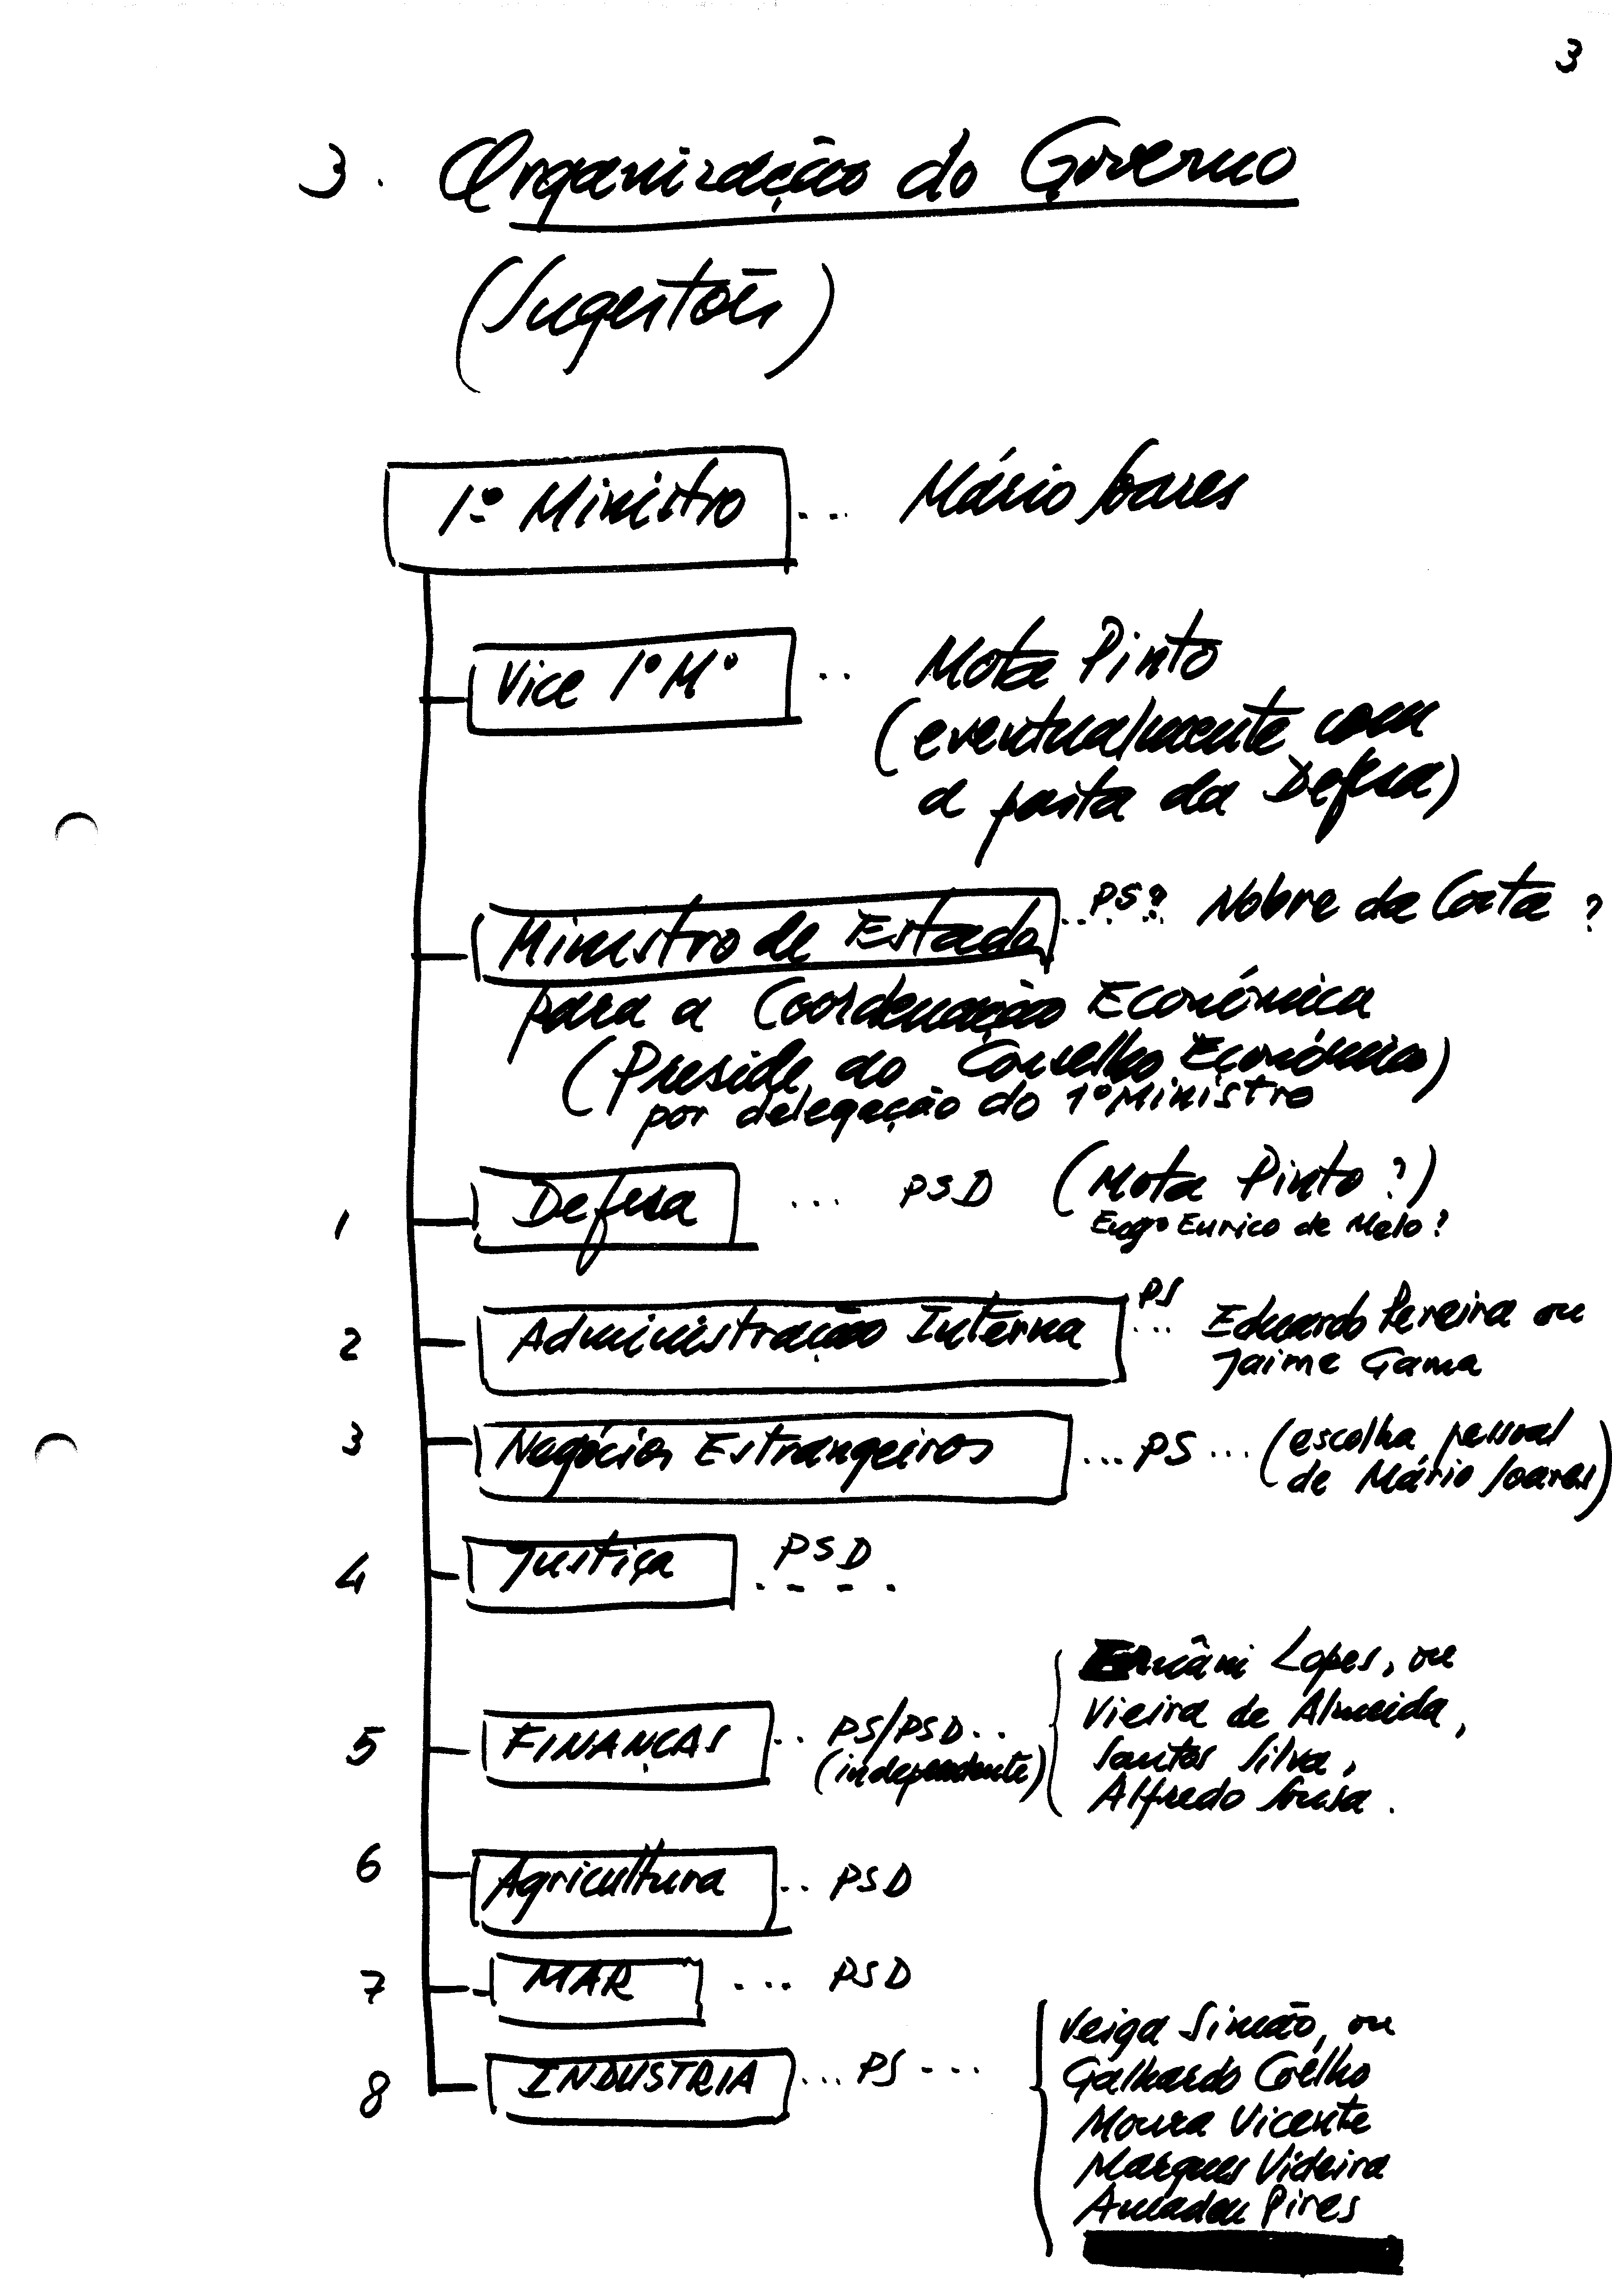 3
3. Organização do Governo
(Sugestões)
1º Ministro ... Mário Soares
Vice 1º Mº .. Mota Pinto
(eventualmente com
a pasta da Defesa)
Ministro de Estado ..... PS? Nobre da Costa ?
para a Coordenação Económica
(Preside ao Conselho Económico)
por delegação do 1º Ministro
1 Defesa ... PSD (Mota Pinto?)
Engº Eurico de Melo?
2 Administração Interna PS ... Eduardo Pereira ou
Jaime Gama
3 Negócios Estrangeiros ... PS ... (escolha pessoal
de Mário Soares)
4 Justiça PSD . - - .
5 FINANÇAS .. PS/PSD .. (independente)
Ernâni Lopes, ou
Vieira de Almeida,
Santos Silva,
Alfredo Sousa.
6 Agricultura .. PSD
7 MAR ... PSD
8 INDUSTRIA ... PS ...
Veiga Simão, ou
Galhardo Coêlho
Moura Vicente
Marques Videira
Amadeu Pires